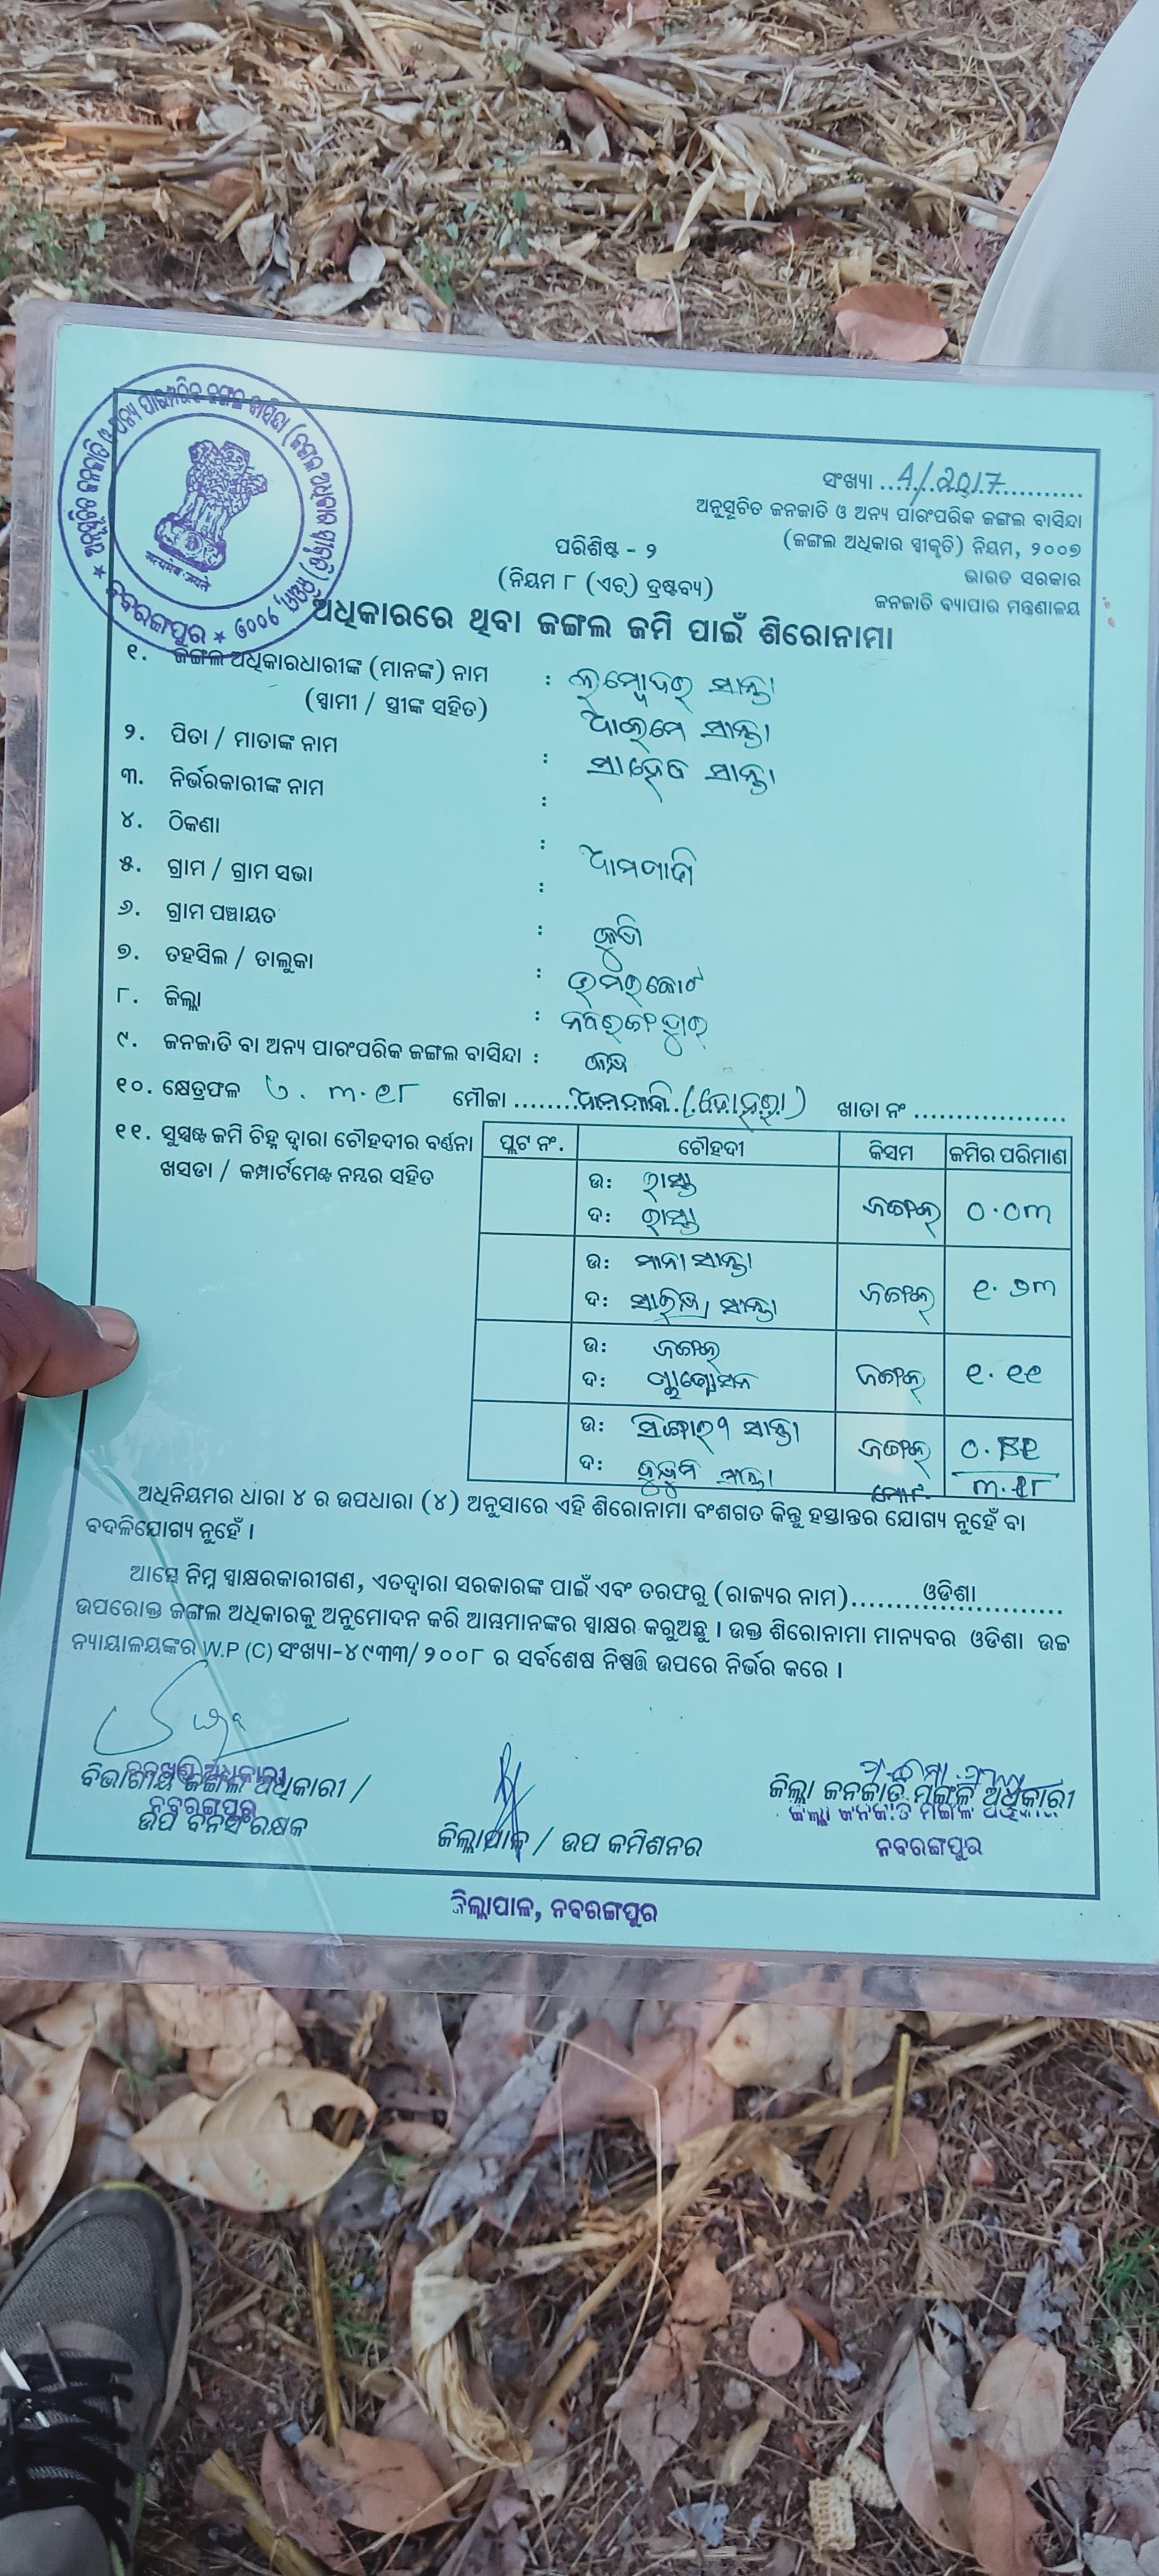 ଅନୁସୂଚିତ ଜନଜାତି ଓ ଅନ୍ୟ ପାରଂପରିକ ଜଙ୍ଗଲ ବାସିନ୍ଦା (ଜଙ୍ଗଲ ଅଧିକାର ସ୍ୱୀକୃତି) ନିୟମ, ୨୦୦୭
ନବରଙ୍ଗପୁର
सत्यमेव जयते
ସଂଖ୍ୟା 4/2017
ଅନୁସୂଚିତ ଜନଜାତି ଓ ଅନ୍ୟ ପାରଂପରିକ ଜଙ୍ଗଲ ବାସିନ୍ଦା
(ଜଙ୍ଗଲ ଅଧିକାର ସ୍ୱୀକୃତି) ନିୟମ, ୨୦୦୭
ଭାରତ ସରକାର
ଜନଜାତି ବ୍ୟାପାର ମନ୍ତ୍ରଣାଳୟ
ପରିଶିଷ୍ଟ - ୨
(ନିୟମ ୮ (ଏଚ୍) ଦ୍ରଷ୍ଟବ୍ୟ)
ଅଧିକାରରେ ଥିବା ଜଙ୍ଗଲ ଜମି ପାଇଁ ଶିରୋନାମା
୧. ଜଙ୍ଗଲ ଅଧିକାରଧାରୀଙ୍କ (ମାନଙ୍କ) ନାମ : ଲମ୍ବୋଦର ସାନ୍ତା
(ସ୍ୱାମୀ / ସ୍ତ୍ରୀଙ୍କ ସହିତ) ସାନ୍ତା
୨. ପିତା / ମାତାଙ୍କ ନାମ : ସାନ୍ତା
୩. ନିର୍ଭରକାରୀଙ୍କ ନାମ :
୪. ଠିକଣା :
୫. ଗ୍ରାମ / ଗ୍ରାମ ସଭା :
୬. ଗ୍ରାମ ପଞ୍ଚାୟତ :
୭. ତହସିଲ / ତାଲୁକା : ଉମରକୋଟ
୮. ଜିଲ୍ଲା : ନବରଙ୍ଗପୁର
୯. ଜନଜାତି ବା ଅନ୍ୟ ପାରଂପରିକ ଜଙ୍ଗଲ ବାସିନ୍ଦା :
୧୦. କ୍ଷେତ୍ରଫଳ ୩.୧୮ ମୌଜା ଖାତା ନଂ
୧୧. ସୁସ୍ପଷ୍ଟ ଜମି ଚିହ୍ନ ଦ୍ୱାରା ଚୌହଦୀର ବର୍ଣ୍ଣନା
ଖସଡା / କମ୍ପାର୍ଟମେଣ୍ଟ ନମ୍ବର ସହିତ
ପ୍ଲଟ ନଂ. ଚୌହଦୀ କିସମ ଜମିର ପରିମାଣ
ଉ: ରାସ୍ତା
ଦ: ରାସ୍ତା ଜଙ୍ଗଲ ୦.୦୩
ଉ: ସାନ୍ତା
ଦ: ସାନ୍ତା ଜଙ୍ଗଲ ୧.୬୩
ଉ: ଜଙ୍ଗଲ
ଦ: ଜଙ୍ଗଲ ୧.୧୧
ଉ: ସାନ୍ତା
ଦ: ସାନ୍ତା ଜଙ୍ଗଲ
ମୋଟ ୩.୧୮
ଅଧିନିୟମର ଧାରା ୪ ର ଉପଧାରା (୪) ଅନୁସାରେ ଏହି ଶିରୋନାମା ବଂଶଗତ କିନ୍ତୁ ହସ୍ତାନ୍ତର ଯୋଗ୍ୟ ନୁହେଁ ବା
ବଦଳିଯୋଗ୍ୟ ନୁହେଁ ।
ଆମ୍ଭେ ନିମ୍ନ ସ୍ୱାକ୍ଷରକାରୀଗଣ, ଏତଦ୍ୱାରା ସରକାରଙ୍କ ପାଇଁ ଏବଂ ତରଫରୁ (ରାଜ୍ୟର ନାମ) ଓଡିଶା
ଉପରୋକ୍ତ ଜଙ୍ଗଲ ଅଧିକାରକୁ ଅନୁମୋଦନ କରି ଆମ୍ଭମାନଙ୍କର ସ୍ୱାକ୍ଷର କରୁଅଛୁ । ଉକ୍ତ ଶିରୋନାମା ମାନ୍ୟବର ଓଡିଶା ଉଚ୍ଚ
ନ୍ୟାୟାଳୟଙ୍କର W.P (C) ସଂଖ୍ୟା-୪୯୩୩/୨୦୦୮ ର ସର୍ବଶେଷ ନିଷ୍ପତ୍ତି ଉପରେ ନିର୍ଭର କରେ ।
ବନଖଣ୍ଡ ଅଧିକାରୀ
ବିଭାଗୀୟ ଜଙ୍ଗଲ ଅଧିକାରୀ /
ନବରଙ୍ଗପୁର
ଉପ ବନସଂରକ୍ଷକ
ଜିଲ୍ଲାପାଳ / ଉପ କମିଶନର
ଜିଲ୍ଲା ଜନଜାତି ମଙ୍ଗଳ ଅଧିକାରୀ
ଜିଲ୍ଲା ଜନଜାତି ମଙ୍ଗଳ ଅଧିକାରୀ
ନବରଙ୍ଗପୁର
ଜିଲ୍ଲାପାଳ, ନବରଙ୍ଗପୁର